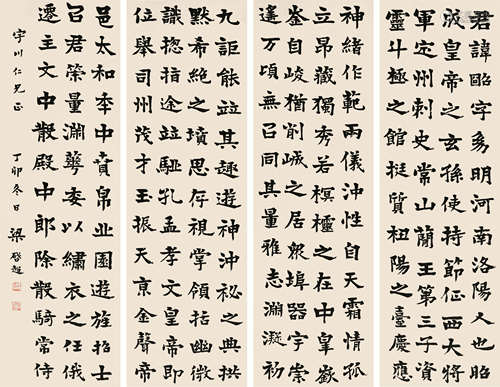 君諱昭字明河南洛陽人也昭
成皇帝之玄孫使持節征西大將
軍定州刺史常山蘭王第三子資
靈斗極之館挺質杻陽之臺慶應
神緒作範兩儀沖性自天霜情孤
立昂藏獨秀若榠櫨之在中皋嶽
峯自峻猶削之居衆埠器宇崇
邃万頃無召其量雅志淵凝初
九詎能竝其趣遊神沖祕之典拱
默希絶之墳思存視掌領括幽微
識揔指途竝駈孔孟孝文皇帝即
位舉司州茂才玉振天京金聲帝
邑太和季中賁帛丘園遊旌招士
召君榮量淵華委以繡衣之任俄
遷主文中散殿中郎除散騎常侍
宇川仁兄正 丁卯冬日 梁啟超